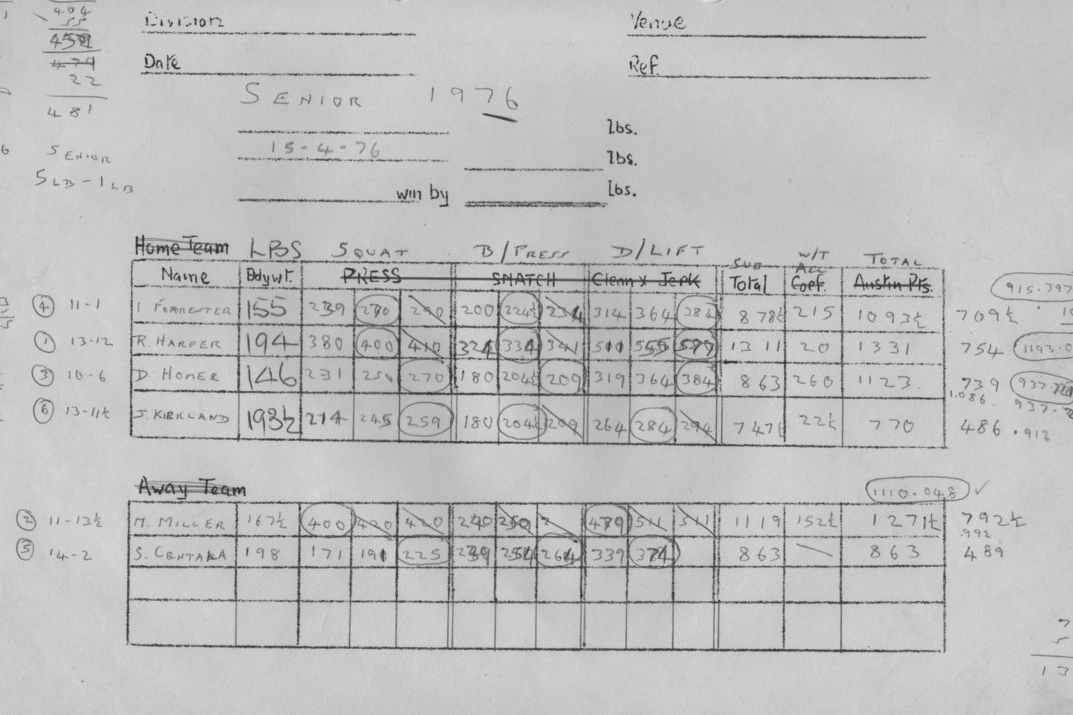 404
55
459
479
22
481
SENIOR
5 LB - 1 LB
Division
Venue
Date
Ref.
SENIOR 1976
lbs.
15-4-76
lbs.
win by lbs.
Home Team LBS SQUAT B/PRESS D/LIFT SUB W/T ALL TOTAL
Name Bdywt. PRESS SNATCH Clean x Jerk Total Coef. Austin Pts.
915.397
4 11-1 I FORRESTER 155 239 270 290 200 224½ 234 314 364 384 878½ 215 1093½ 709½
1 13-12 R. HARPER 194 380 400 410 324 334 341 511 555 577 1311 20 1331 754 1193.0
3 10-6 D. HOMER 146 231 250 270 180 204½ 209 319 364 384 863 260 1123. 739
1.086
6 13-11½ J. KIRKLAND 193½ 214 245 259 180 204½ 209 264 284 294 747½ 22½ 770 486 .912
Away Team 1110.048 ✓
2 11-13½ M. MILLER 167½ 400 420 420 240 250 489 511 511 1119 152½ 1271½ 792½
.992
5 14-2 S. CENTAKA 198 171 191 225 239 254 264 339 374 863 863 489